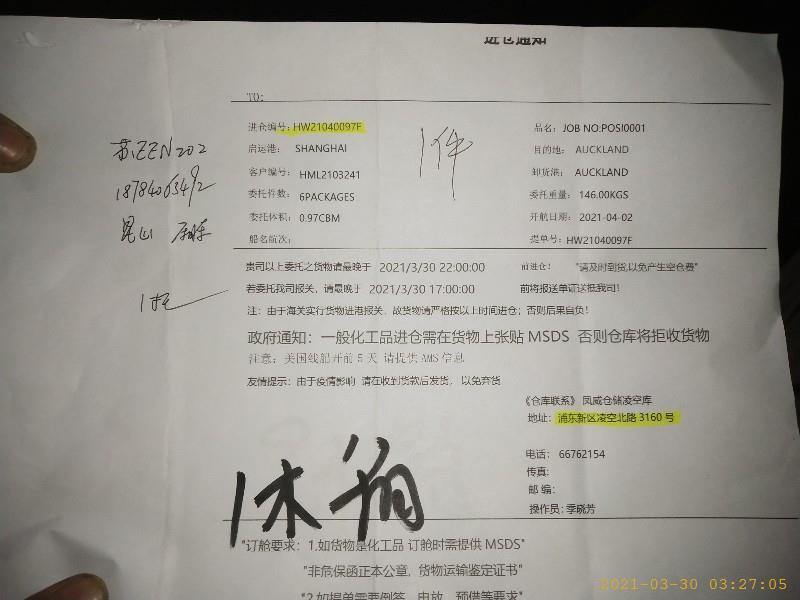 进仓通知
TO:
进仓编号: HW21040097F
品名: JOB NO:POSI0001
启运港: SHANGHAI
目的地: AUCKLAND
客户编号: HML2103241
卸货港: AUCKLAND
委托件数: 6PACKAGES
委托重量: 146.00KGS
委托体积: 0.97CBM
开航日期: 2021-04-02
船名航次:
提单号: HW21040097F
1件
苏EZN202
昆山
贵司以上委托之货物请最晚于 2021/3/30 22:00:00 前进仓! "请及时到货,以免产生空仓费"
若委托我司报关, 请最晚于 2021/3/30 17:00:00 前将报送单证送抵我司!
注: 由于海关实行货物进港报关, 故货物请严格按以上时间进仓; 否则后果自负!
政府通知: 一般化工品进仓需在货物上张贴 MSDS 否则仓库将拒收货物
注意: 美国线船开前 5 天 请提供 AMS 信息
友情提示: 由于疫情影响 请在收到货款后发货, 以免弃货
《仓库联系》 凤威仓储凌空库
地址: 浦东新区凌空北路 3160 号
电话: 66762154
传真:
邮 编:
操作员: 季晓芳
1木
"订舱要求: 1.如货物是化工品 订舱时需提供 MSDS"
"非危保函正本公章, 货物运输鉴定证书"
"2.如提单需要倒签、电放、预借等要求"
2021-03-30 03:27:05